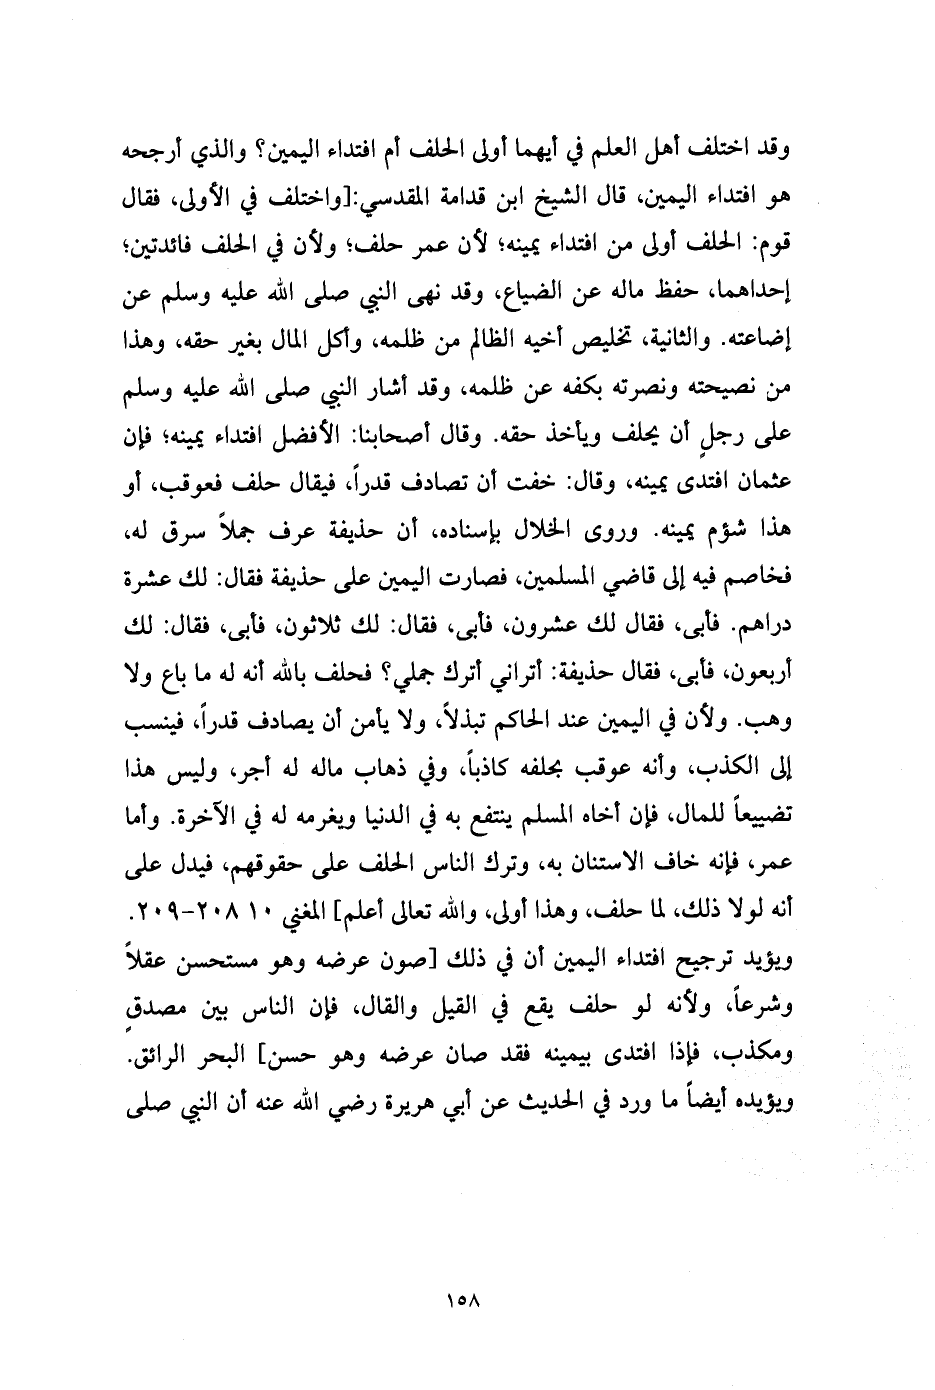 وقد اختلف أهل العلم في أيهما أولى الحلف أم افتداء اليمين؟ والذي أرجحه
هو افتداء اليمين، قال الشيخ ابن قدامة المقدسي:[واختلف في الأولى، فقال
قوم: الحلف أولى من افتداء يمينه؛ لأن عمر حلف؛ ولأن في الحلف فائدتين؛
إحداهما، حفظ ماله عن الضياع، وقد نهى النبي صلى الله عليه وسلم عن
إضاعته. والثانية، تخليص أخيه الظالم من ظلمه، وأكل المال بغير حقه، وهذا
من نصيحته ونصرته بكفه عن ظلمه، وقد أشار النبي صلى الله عليه وسلم
على رجلٍ أن يحلف ويأخذ حقه. وقال أصحابنا: الأفضل افتداء يمينه؛ فإن
عثمان افتدى يمينه، وقال: خفت أن تصادف قدراً، فيقال حلف فعوقب، أو
هذا شؤم يمينه. وروى الخلال بإسناده، أن حذيفة عرف جملاً سرق له،
فخاصم فيه إلى قاضي المسلمين، فصارت اليمين على حذيفة فقال: لك عشرة
دراهم. فأبى، فقال لك عشرون، فأبى، فقال: لك ثلاثون، فأبى، فقال: لك
أربعون، فأبى، فقال حذيفة: أتراني أترك جملي؟ فحلف بالله أنه له ما باع ولا
وهب. ولأن في اليمين عند الحاكم تبذلاً، ولا يأمن أن يصادف قدراً، فينسب
إلى الكذب، وأنه عوقب بحلفه كاذباً، وفي ذهاب ماله له أجر، وليس هذا
تضييعاً للمال، فإن أخاه المسلم ينتفع به في الدنيا ويغرمه له في الآخرة. وأما
عمر، فإنه خاف الاستنان به، وترك الناس الحلف على حقوقهم، فيدل على
أنه لولا ذلك، لما حلف، وهذا أولى، والله تعالى أعلم] المغني ١٠ ٢٠٨-٢٠٩.
ويؤيد ترجيح افتداء اليمين أن في ذلك [صون عرضه وهو مستحسن عقلاً
وشرعاً، ولأنه لو حلف يقع في القيل والقال، فإن الناس بين مصدقٍ
ومكذب، فإذا افتدى بيمينه فقد صان عرضه وهو حسن] البحر الرائق.
ويؤيده أيضاً ما ورد في الحديث عن أبي هريرة رضي الله عنه أن النبي صلى
١٥٨